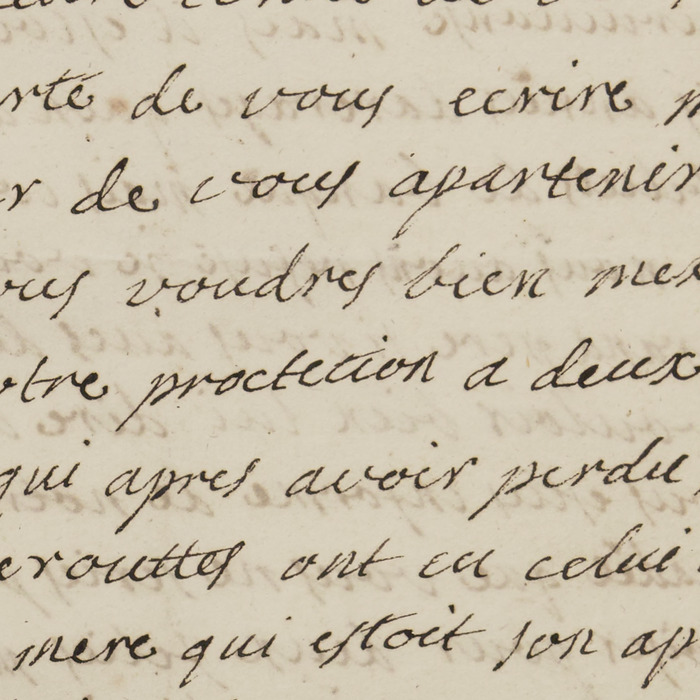 rté de vous ecrire
r de vous apartenir
ous voudres bien mex
otre proctetion a deux
qui apres avoir perdu
erouttes ont eu celui
mere qui estoit son ap